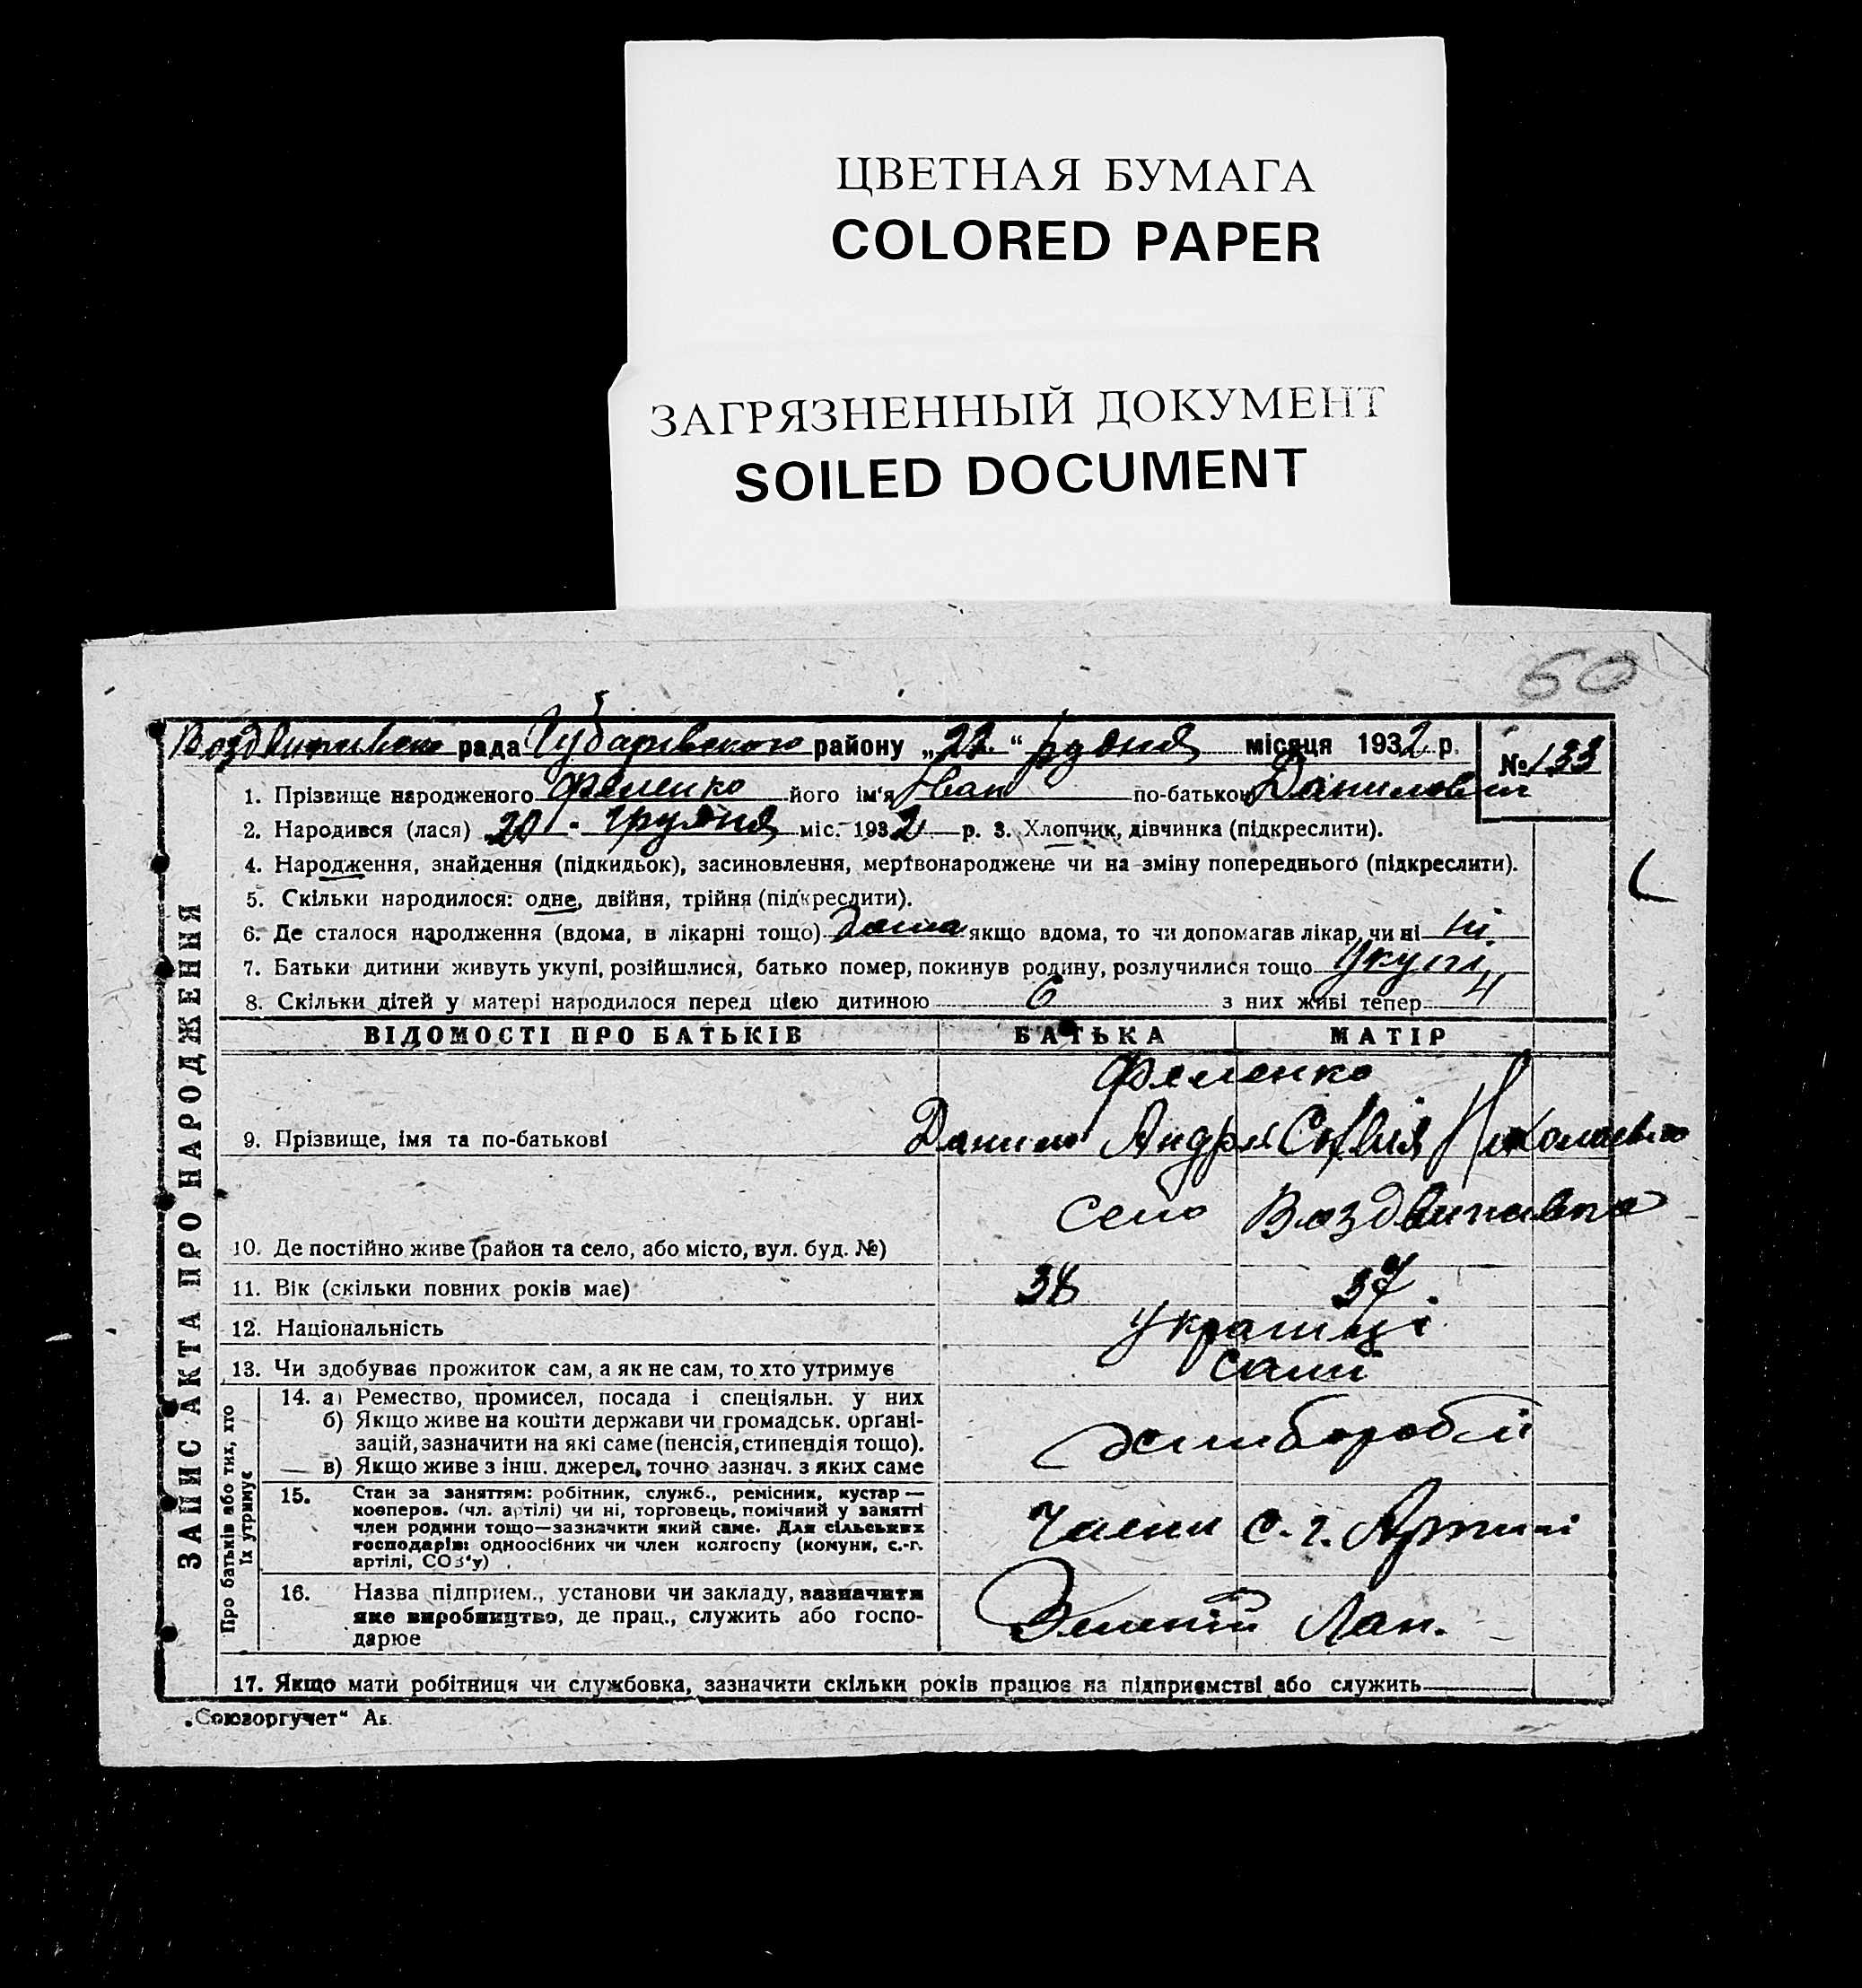 ЦВЕТНАЯ БУМАГА
COLORED PAPER
ЗАГРЯЗНЕННЫЙ ДОКУМЕНТ
SOILED DOCUMENT
60
рада району „22.“ грудня місяця 1932 р.
№ 133
1. Прізвище народженого Феленко його ім'я Іван по-батькові Данилович
2. Народився (лася) 20. грудня міс. 1932 р. 3. Хлопчик, дівчинка (підкреслити).
4. Народження, знайдення (підкидьок), засиновлення, мертвонароджене чи на зміну попереднього (підкреслити).
5. Скільки народилося: одне, двійня, трійня (підкреслити).
6. Де сталося народження (вдома, в лікарні тощо) дома якщо вдома, то чи допомагав лікар, чи ні ні.
7. Батьки дитини живуть укупі, розійшлися, батько помер, покинув родину, розлучилися тощо Укупі
8. Скільки дітей у матері народилося перед цією дитиною 6 з них живі тепер 4
ВІДОМОСТІ ПРО БАТЬКІВ БАТЬКА МАТІР
Феленко
9. Прізвище, імя та по-батькові Данило Андрі Софія
село Воздвиживка
10. Де постійно живе (район та село, або місто, вул. буд. №)
11. Вік (скільки повних років має) 38 37.
12. Національність Українці
13. Чи здобуває прожиток сам, а як не сам, то хто утримує сами
14. а) Ремество, промисел, посада і спеціяльн. у них
б) Якщо живе на кошти держави чи громадськ. органі-
зацій, зазначити на які саме (пенсія, стипендія тощо).
в) Якщо живе з інш. джерел, точно зазнач. з яких саме
15. Стан за заняттям: робітник, служб., ремісник, кустар —
кооперов. (чл. артілі) чи ні, торговець, помічний у занятті
член родини тощо—зазначити який саме. Для сільських
господарів: одноосібних чи член колгоспу (комуни, с.-г.
артілі, СОЗ'у)
Члени С.-г. Артилі
16. Назва підприєм., установи чи закладу, зазначити
яке виробництво, де прац., служить або госпо-
дарює
Зелений Лан.
17. Якщо мати робітниця чи службовка, зазначити скільки років працює на підприємстві або служить
ЗАПИС АКТА ПРО НАРОДЖЕННЯ
Про батьків або тих, хто
їх утримує
„Союзоргучет“